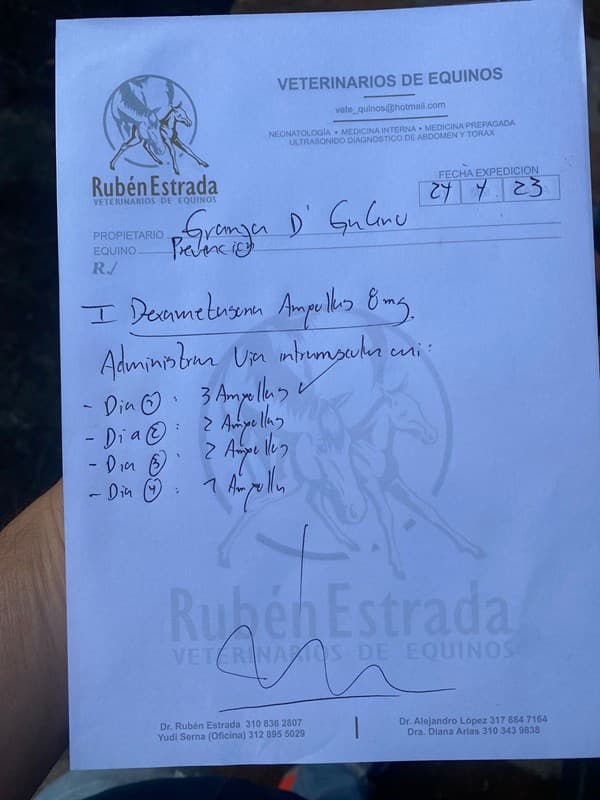 VETERINARIOS DE EQUINOS
vete_quinos@hotmail.com
NEONATOLOGÍA • MEDICINA INTERNA • MEDICINA PREPAGADA
ULTRASONIDO DIAGNOSTICO DE ABDOMEN Y TORAX
Rubén Estrada
VETERINARIOS DE EQUINOS
FECHA EXPEDICION
24 4 23
PROPIETARIO Granja D'
EQUINO
R./
I Dexametasona Ampollas 8mg.
Administrar Via intramuscular asi:
- Dia 1 : 3 Ampollas
- Dia 2 : 2 Ampollas
- Dia 3 : 2 Ampollas
- Dia 4 : 1 Ampolla
Rubén Estrada
VETERINARIOS DE EQUINOS
Dr. Rubén Estrada 310 836 2807
Yudi Serna (Oficina) 312 895 5029
Dr. Alejandro López 317 684 7164
Dra. Diana Arias 310 343 9838